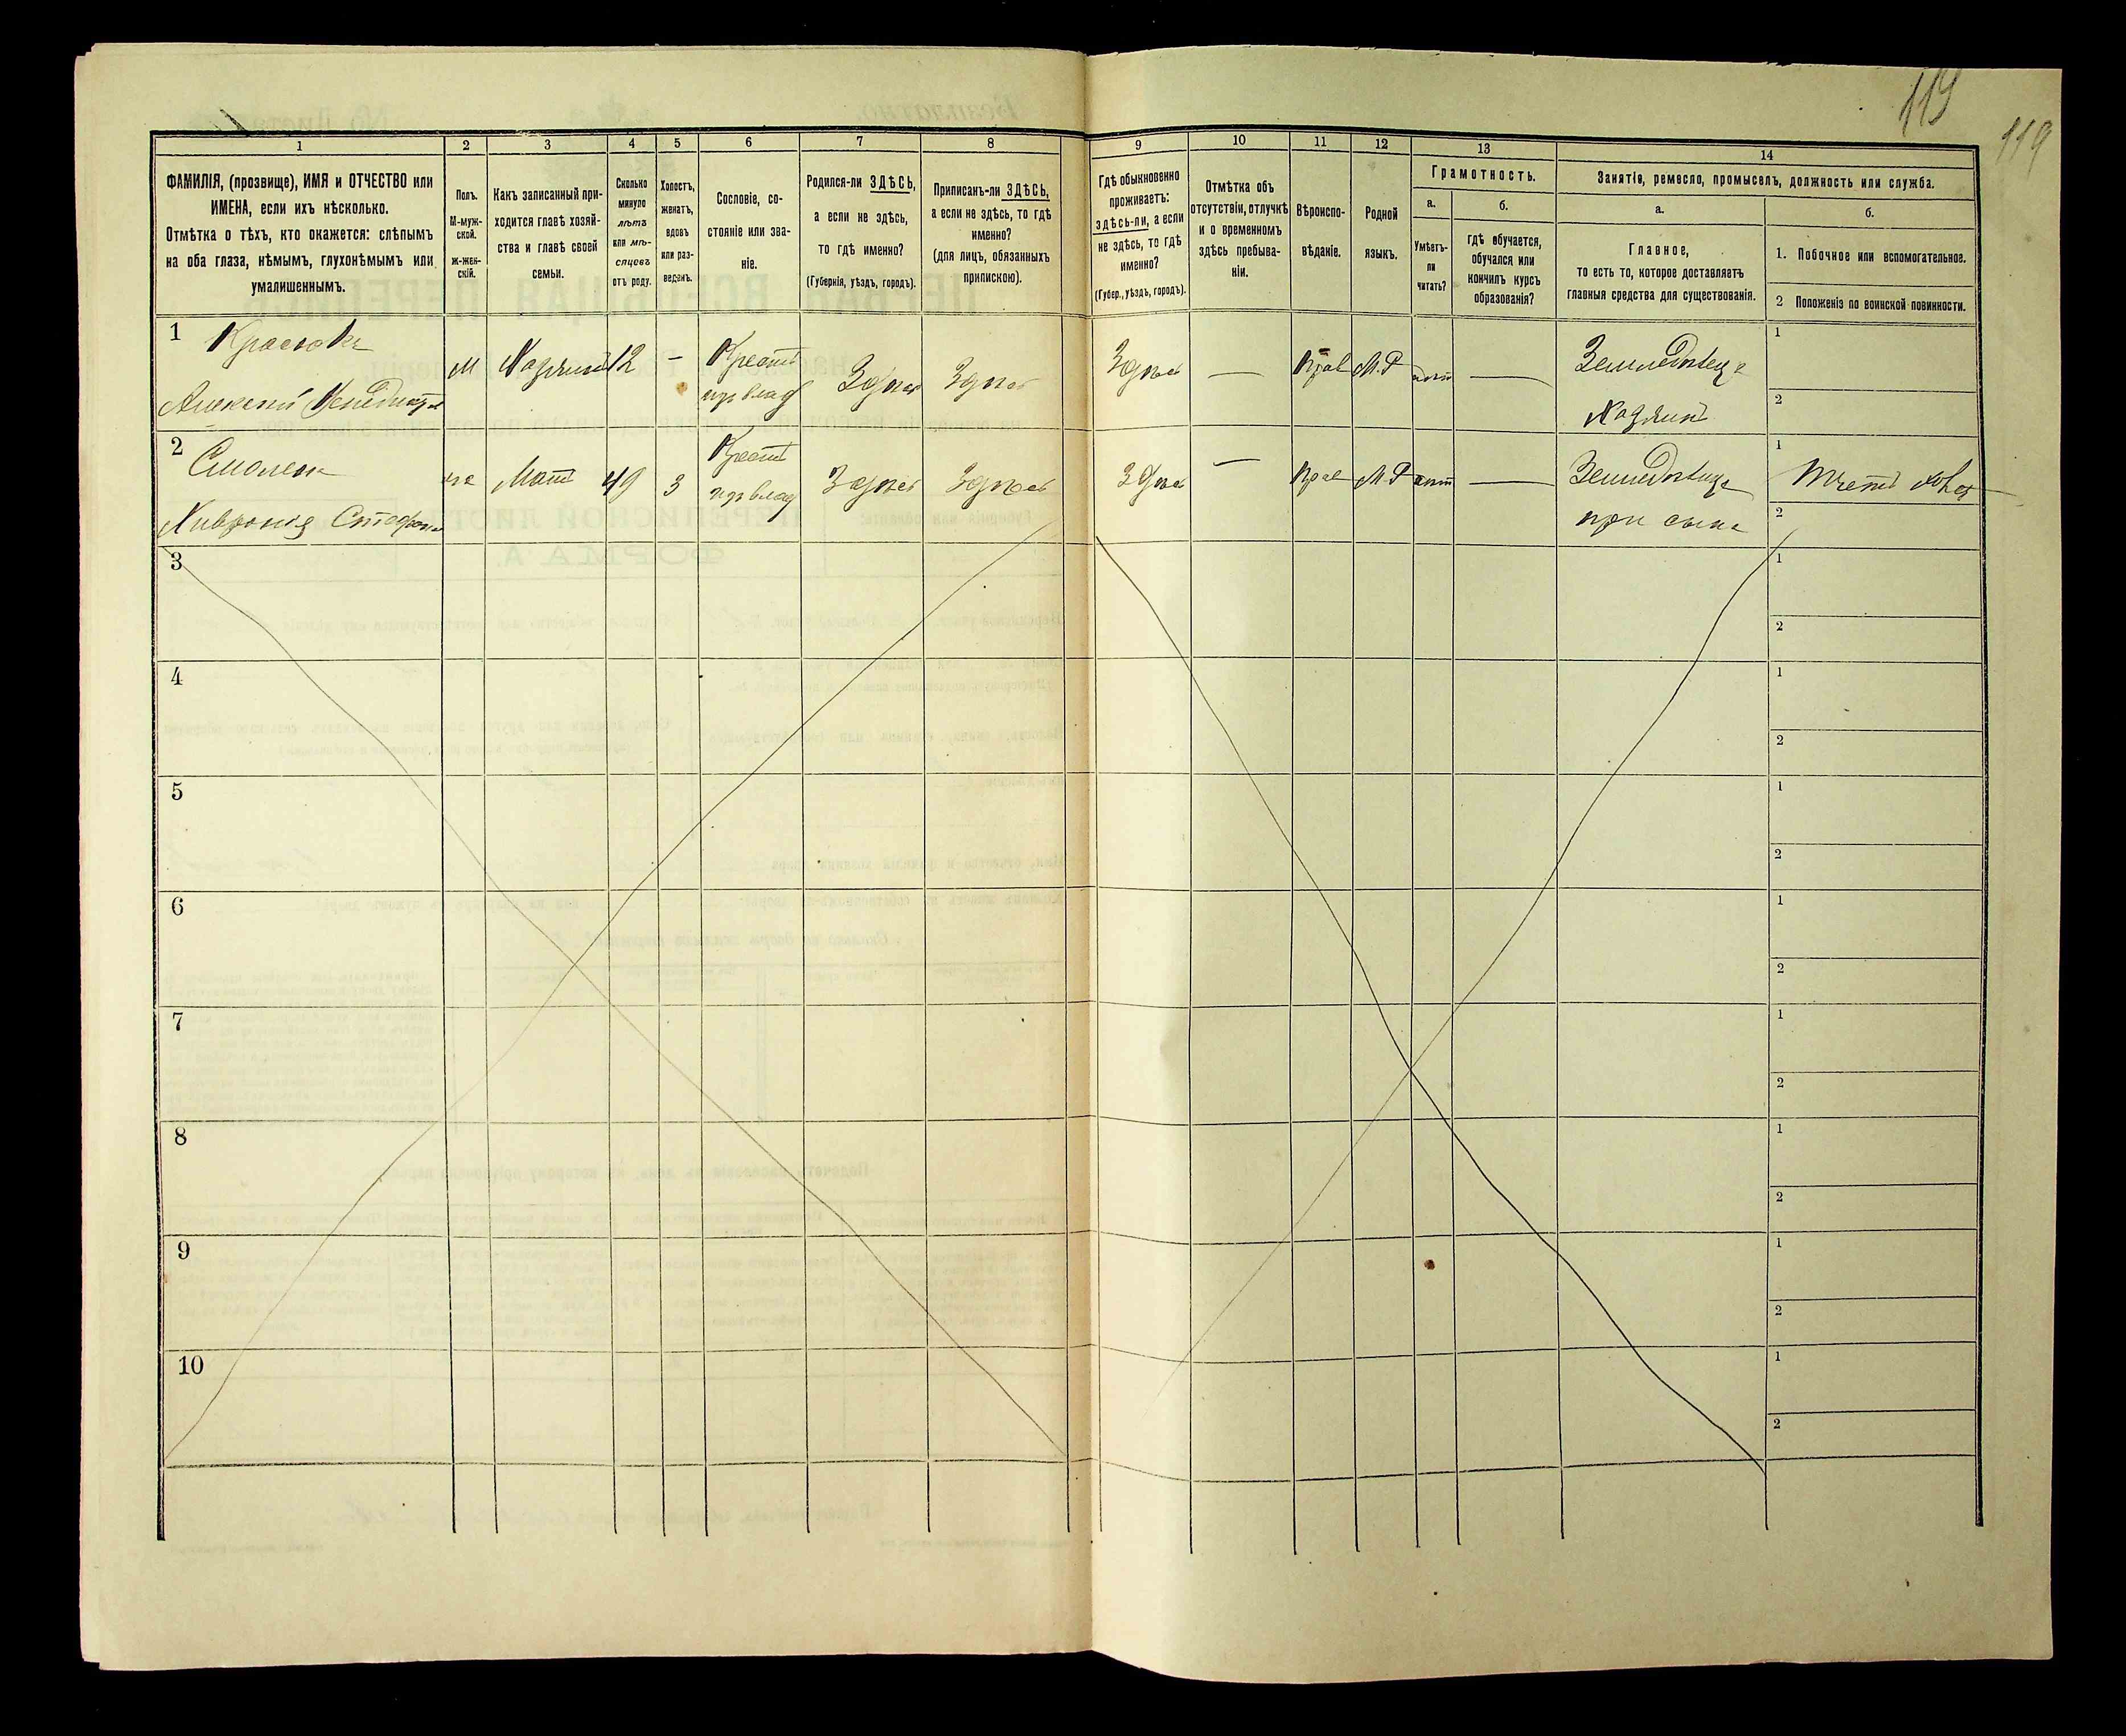 119
119
1
2
3
4
5
6
7
8
9
10
11
12
13
14
ФАМИЛІЯ, (прозвище), ИМЯ и ОТЧЕСТВО или
ИМЕНА, если ихъ нѣсколько.
Отмѣтка о тѣхъ, кто окажется: слѣпымъ
на оба глаза, нѣмымъ, глухонѣмымъ или
умалишеннымъ.
Полъ.
М-муж-
ской.
ж-жен-
скій.
Какъ записанный при-
ходится главѣ хозяй-
ства и главѣ своей
семьи.
Сколько
минуло
лѣтъ
или мѣ-
сяцевъ
отъ роду.
Холостъ,
женатъ,
вдовъ
или раз-
веденъ.
Сословіе, со-
стояніе или зва-
ніе.
Родился-ли ЗДѢСЬ,
а если не здѣсь,
то гдѣ именно?
(Губернія, уѣздъ, городъ).
Приписанъ-ли ЗДѢСЬ,
а если не здѣсь, то гдѣ
именно?
(для лицъ, обязанныхъ
припискою).
Гдѣ обыкновенно
проживаетъ:
здѣсь-ли, а если
не здѣсь, то гдѣ
именно?
(Губер., уѣздъ, городъ).
Отмѣтка объ
отсутствіи, отлучкѣ
и о временномъ
здѣсь пребыва-
ніи.
Вѣроиспо-
вѣданіе.
Родной
языкъ.
Грамотность.
а.
б.
Умѣетъ-
ли
читать?
гдѣ обучается,
обучался или
кончилъ курсъ
образованія?
Занятіе, ремесло, промыселъ, должность или служба.
а.
б.
Главное,
то есть то, которое доставляетъ
главныя средства для существованія.
1. Побочное или вспомогательное.
2 Положеніе по воинской повинности.
1
м Хозяинъ 12 - Крест Здѣсь Здѣсь Здѣсь — Прав М.Р нѣт — Земледѣлец 1
Алексѣй
из влад
Хозяинъ 2
2
Мать 49 3 Крест Здѣсь Здѣсь Здѣсь — Прав М.Р нѣт — 1
из влад
при сынѣ 2
3
1
2
4
1
2
5
1
2
6
1
2
7
1
2
8
1
2
9
1
2
10
1
2